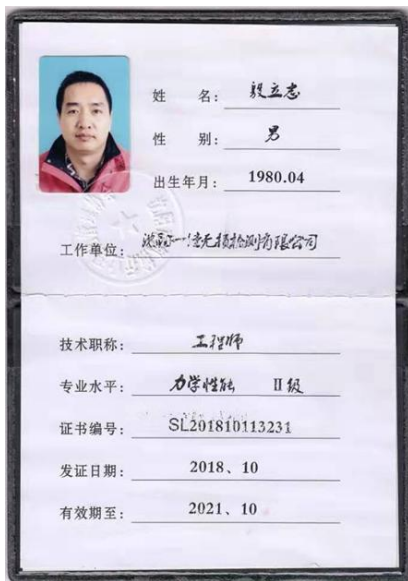 姓 名：毅立志
性 别：男
出生年月：1980.04
工作单位：无损检测有限公司
技术职称：工程师
专业水平：力学性能 II级
证书编号：SL201810113231
发证日期：2018、10
有效期至：2021、10